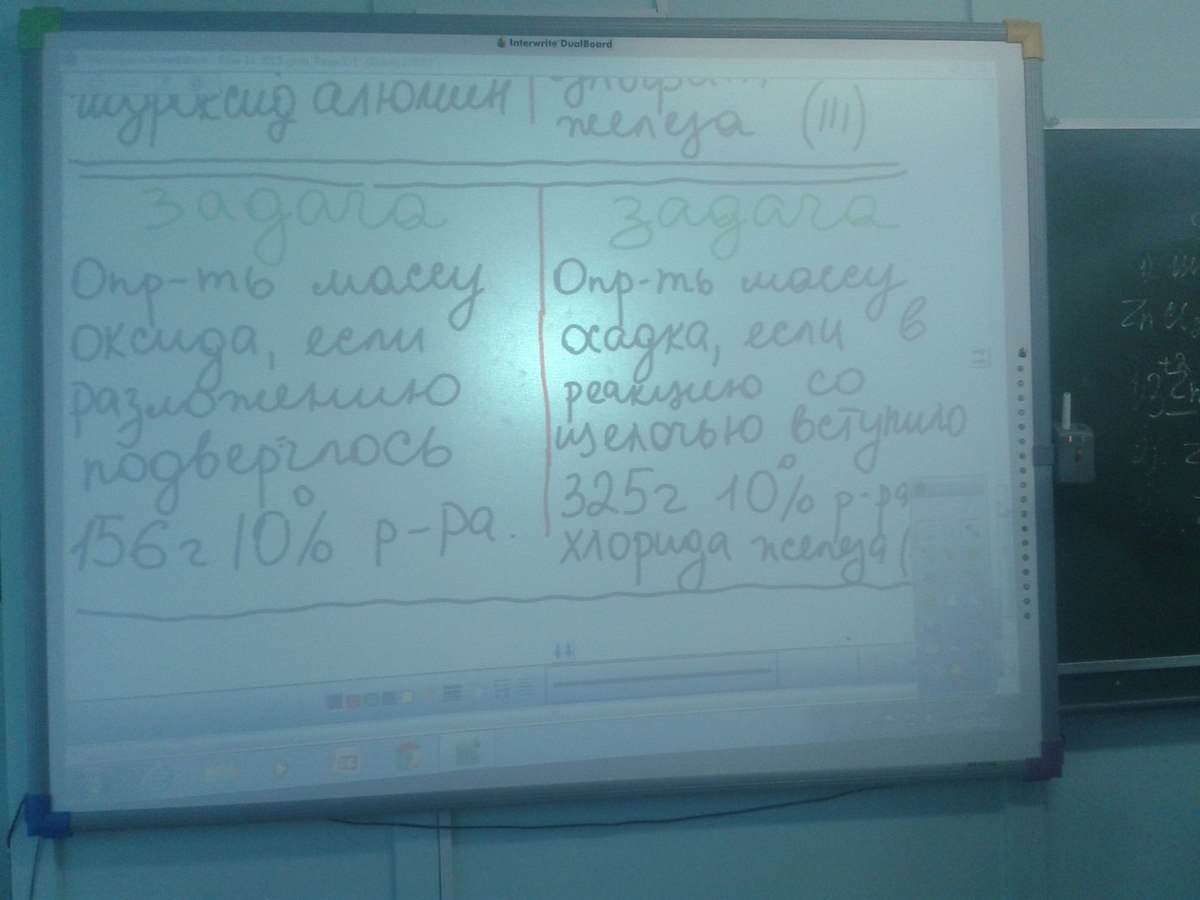 Interwrite DualBoard
алюмин
железа (III)
задача
Опр-ть массу
оксида, если
разложению
подверглось
156г 10% р-ра.
задача
Опр-ть массу
осадка, если в
реакцию со
щелочью вступило
325г 10% р-ра
хлорида железа (
Zn